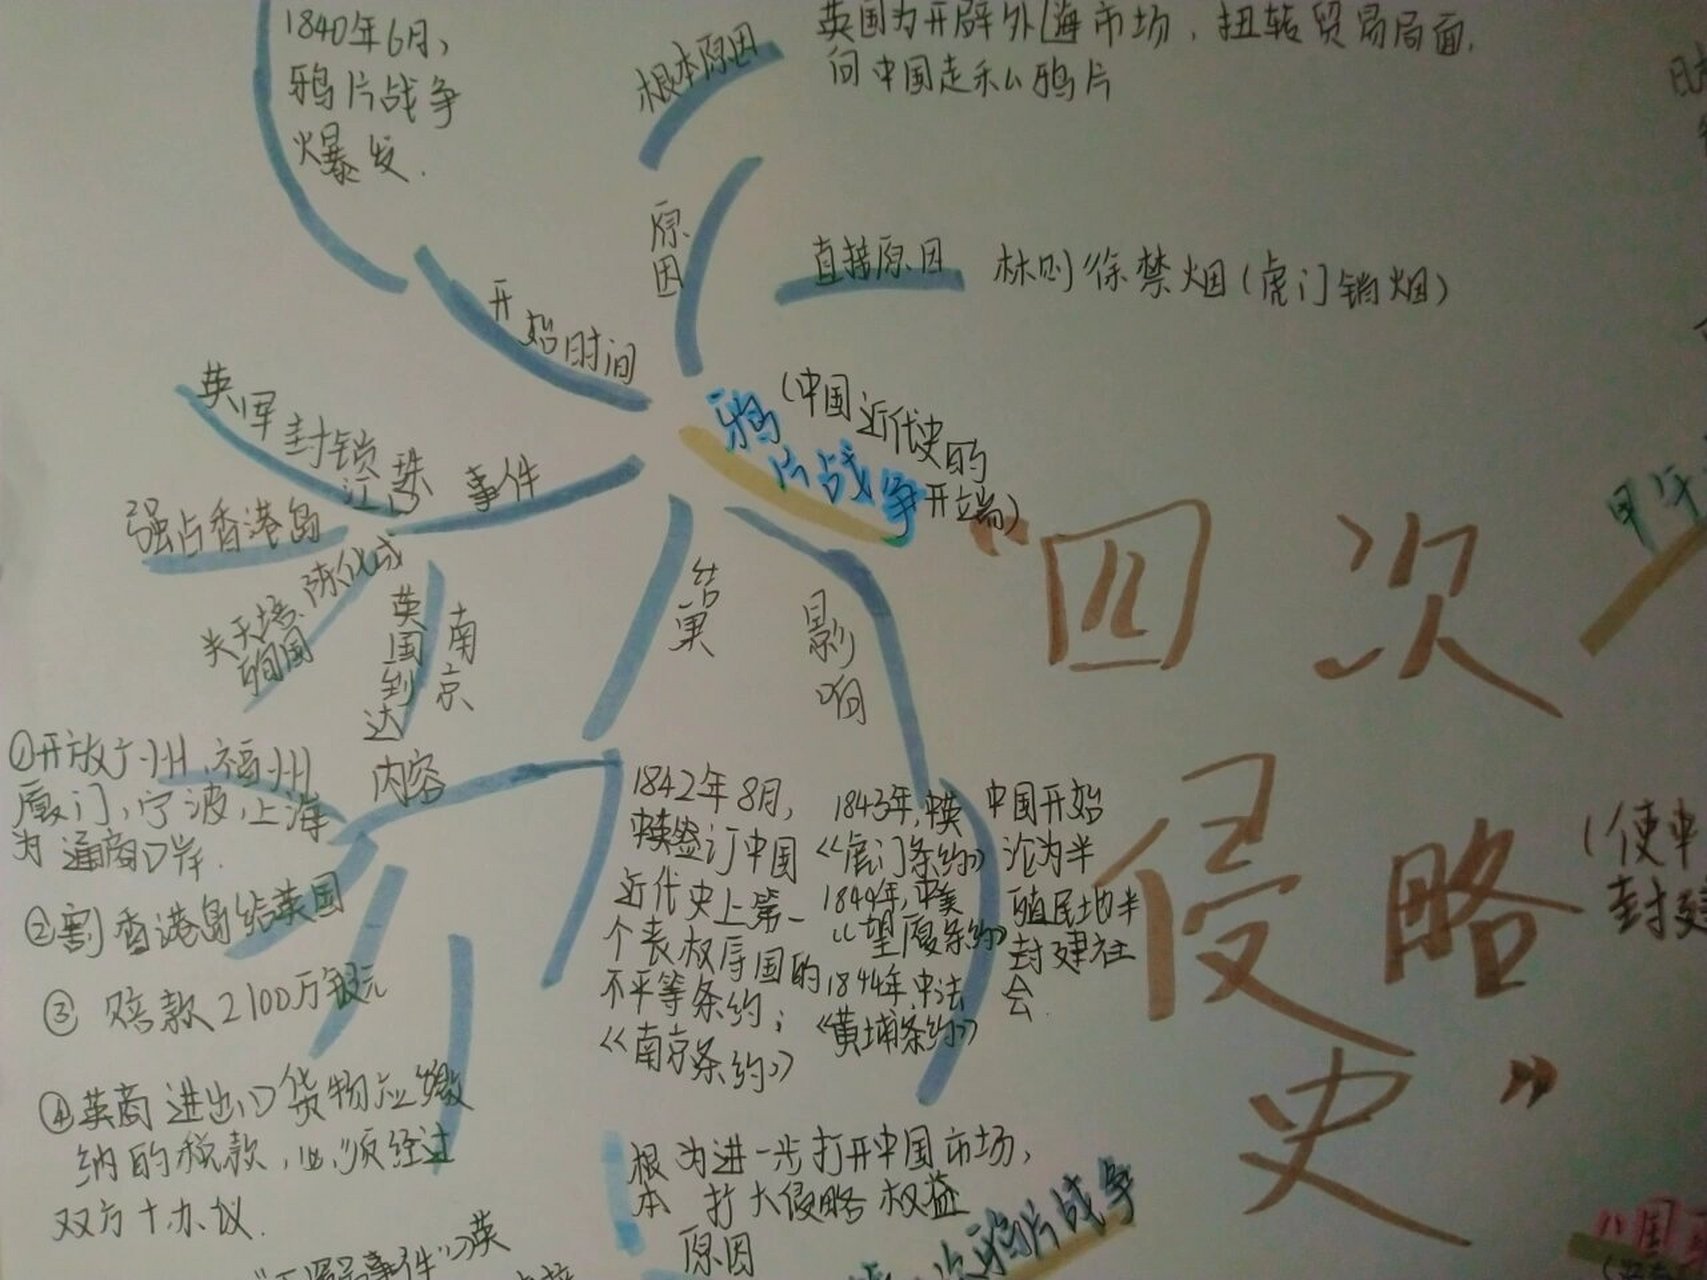 1840年6月，
鸦片战争
爆发.
根本原因
英国为开辟外国海市场，扭转贸易局面，
向中国走私鸦片
原因
直接原因
林则徐禁烟（虎门销烟）
开始时间
鸦片战争
（中国近代史的
开端）
英军封锁珠
江口
事件
强占香港岛
关天培、陈化成
殉国
英国到达
南京
结果
影响
“四次
侵略
史”
甲午
内容
①开放广州，福州
厦门，宁波，上海
为通商口岸.
②割香港岛给英国
③赔款2100万银元
④英商进出口货物应缴
纳的税款，必须经过
双方协议.
1842年8月，
中英签订中国
近代史上第一
个丧权辱国的
不平等条约；
《南京条约》
1843年，中英
《虎门条约》
1844年，中美
《望厦条约》
1844年，中法
《黄埔条约》
中国开始
沦为半
殖民地半
封建社
会.
（使中
封建
根本
原因
为进一步打开中国市场，
扩大侵略权益
次鸦片战争
事件”英
八国